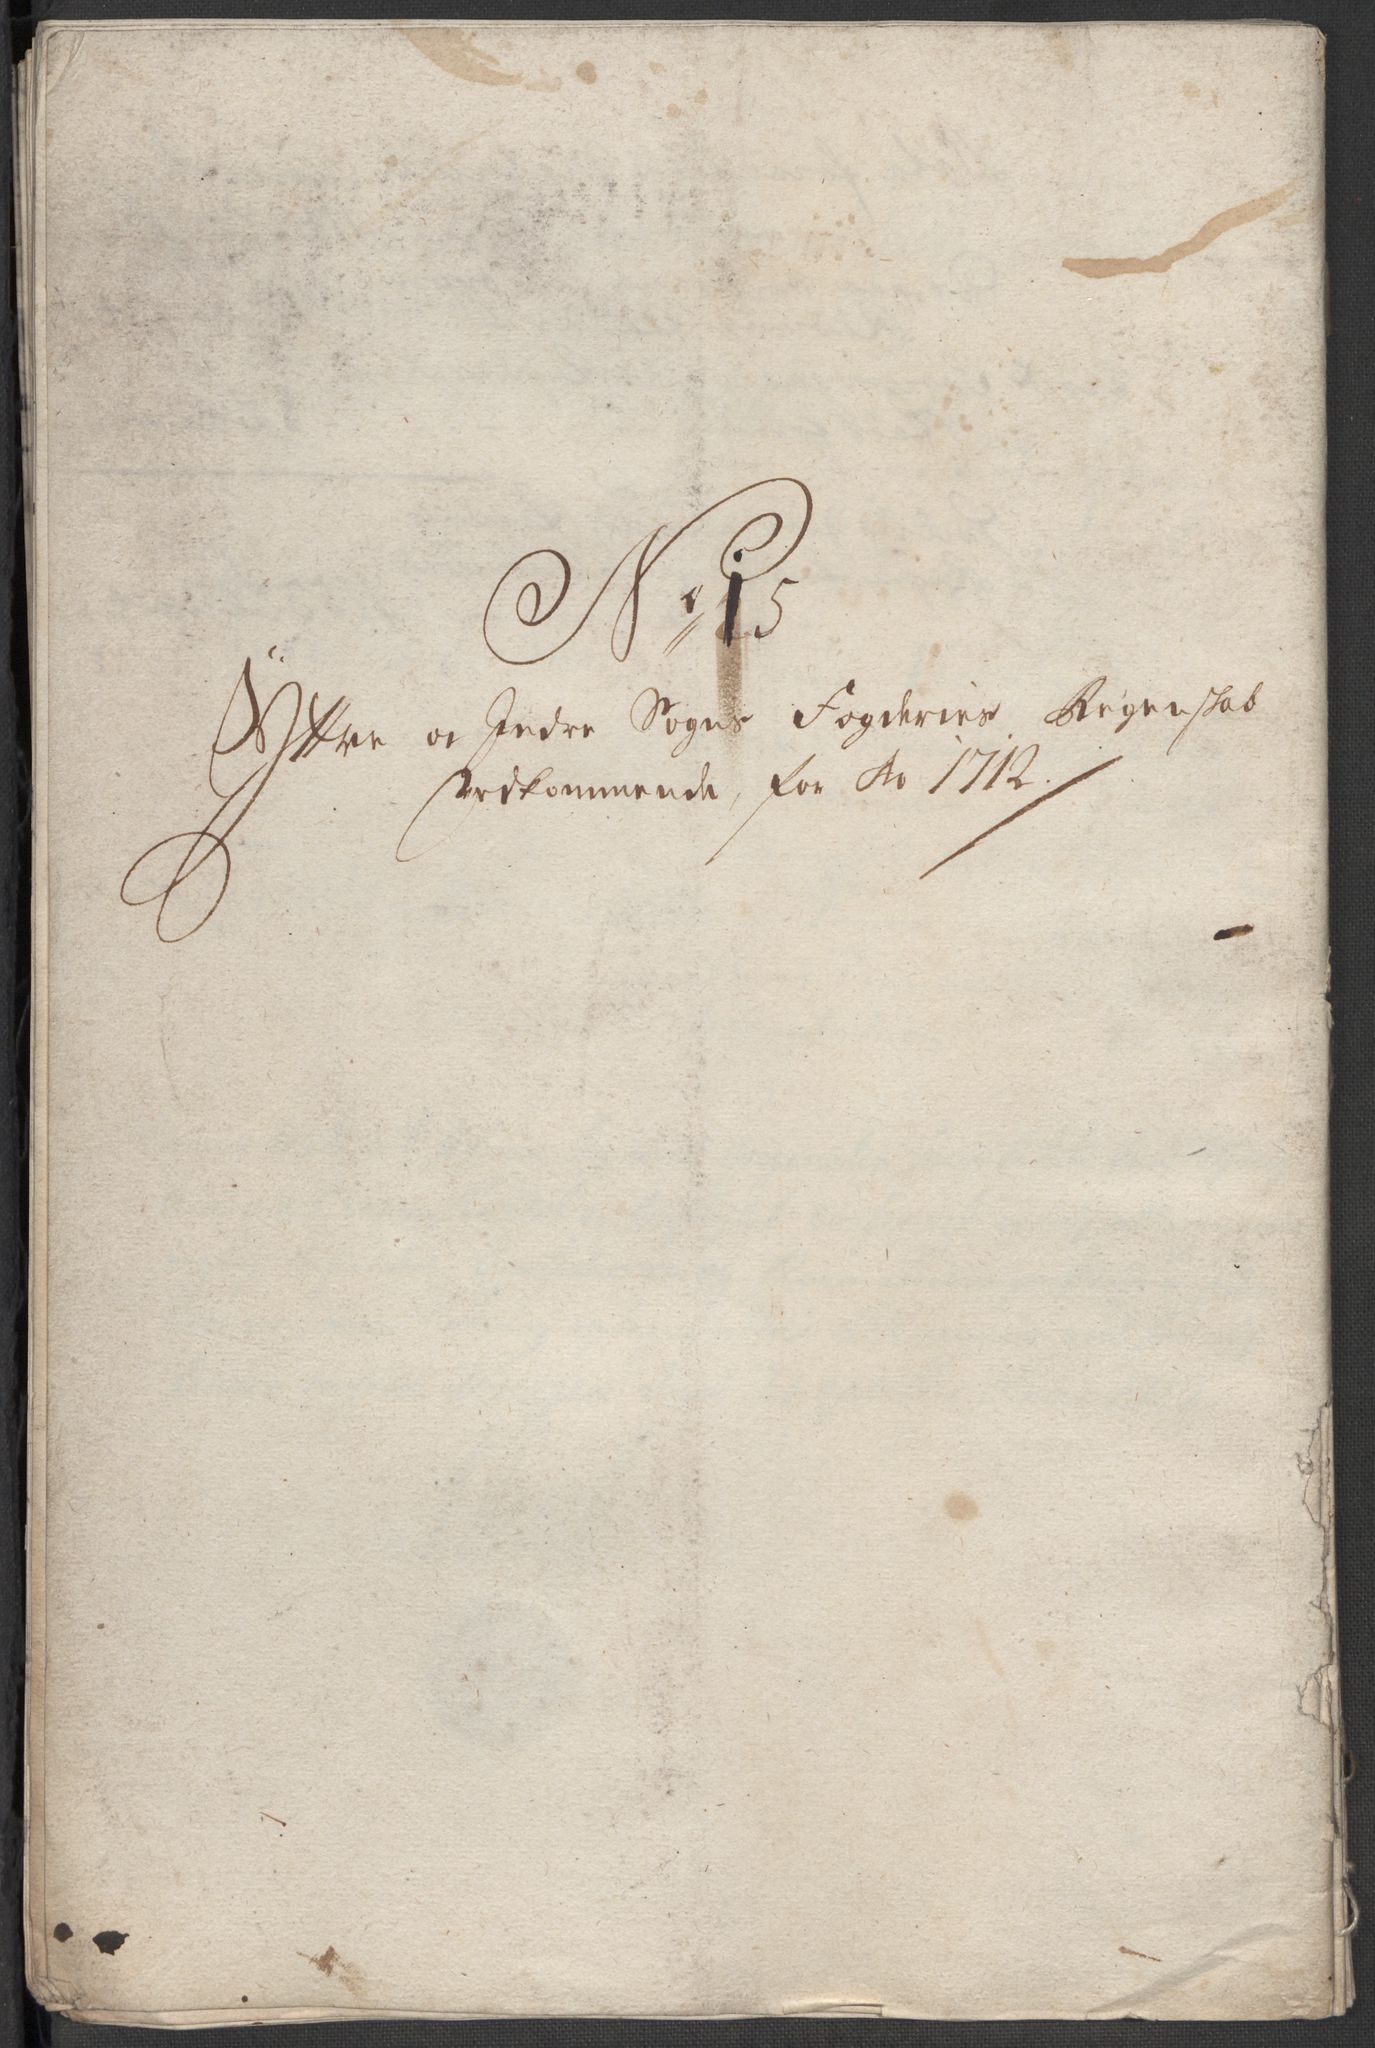 No 15
Yttre oc Indre Sogns Fogderies Regenskab
Vedkommende, for Ao 1712.